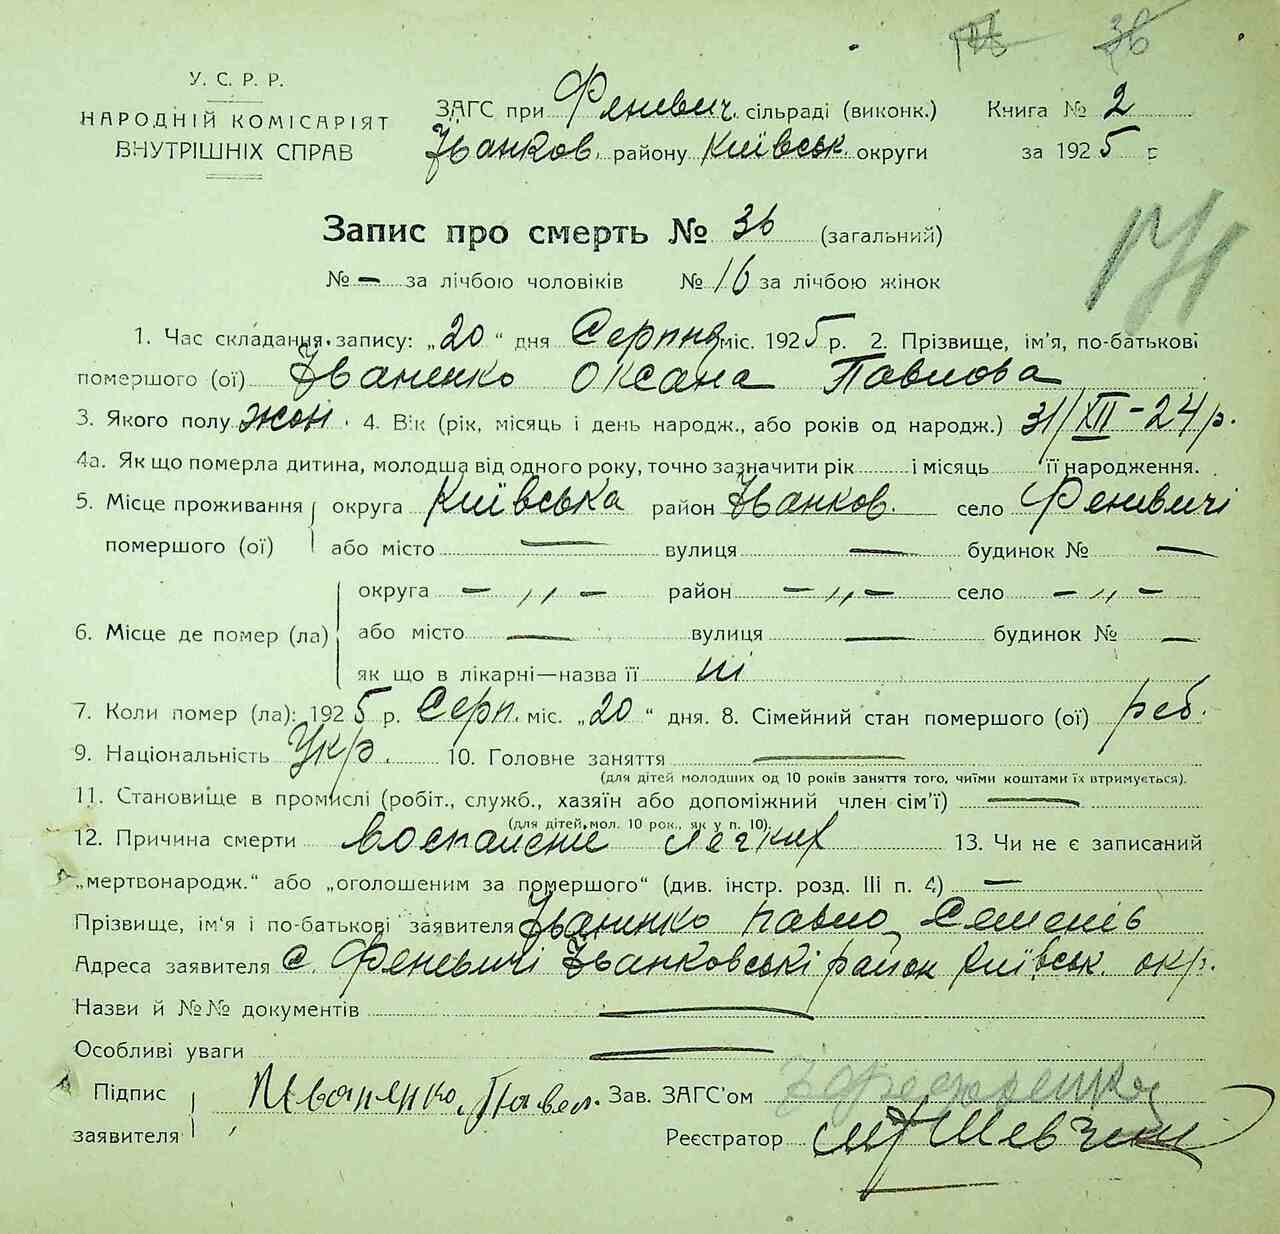 36
У. С. Р. Р.
НАРОДНІЙ КОМІСАРІЯТ
ВНУТРІШНІХ СПРАВ
ЗАГС при Феневич. сільраді (виконк.)
Іванков. району Київськ. округи
Книга № 2
за 1925 г
Запис про смерть № 36 (загальний)
№ — за лічбою чоловіків № 16 за лічбою жінок
171
1. Час складання запису: „20“ дня Серпня міс. 1925 р. 2. Прізвище, ім'я, по-батькові
помершого (ої) Іваненко Оксана Павлова
3. Якого полу жон. 4. Вік (рік, місяць і день народж., або років од народж.) 31/XII-24 р.
4а. Як що померла дитина, молодща від одного року, точно зазначити рік і місяць її народження.
5. Місце проживання помершого (ої) округа Київська район Іванков. село Феневичі
або місто — вулиця — будинок № —
6. Місце де помер (ла) округа — „ — район — „ — село — „ —
або місто — вулиця — будинок № —
як що в лікарні—назва її ні
7. Коли помер (ла): 1925 р. Серп. міс. „20“ дня. 8. Сімейний стан помершого (ої) реб.
9. Національність Укр. 10. Головне заняття —
(для дітей молодших од 10 років заняття того, чиїми коштами їх втримується).
11. Становище в промислі (робіт., служб., хазяїн або допоміжний член сім'ї) —
(для дітей мол. 10 рок., як у п. 10).
12. Причина смерти воспаление легких 13. Чи не є записаний
„мертвонародж.“ або „оголошеним за помершого“ (див. інстр. розд. III п. 4) —
Прізвище, ім'я і по-батькові заявителя Іваненко Павло Семенів
Адреса заявителя с. Феневичі Іванковські район Київськ. окр.
Назви й №№ документів —
Особливі уваги —
Підпис заявителя Иваненко Павел. Зав. ЗАГС'ом
Реєстратор Шевченко